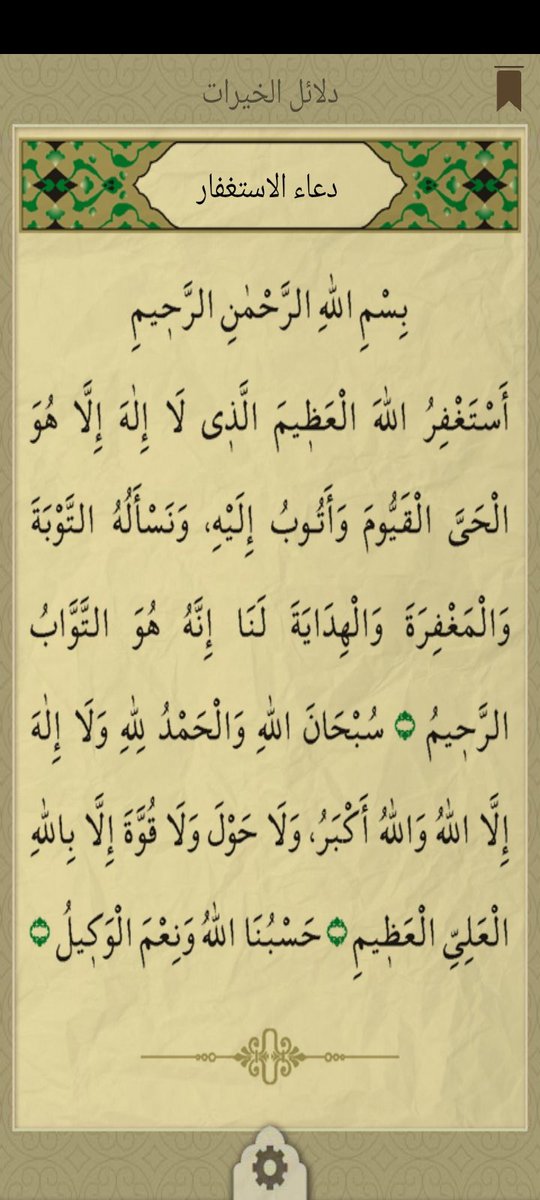 دلائل الخيرات
دعاء الاستغفار
بِسْمِ اللهِ الرَّحْمٰنِ الرَّحِيمِ
أَسْتَغْفِرُ اللهَ الْعَظِيمَ الَّذِى لَا إِلٰهَ إِلَّا هُوَ
الْحَىَّ الْقَيُّومَ وَأَتُوبُ إِلَيْهِ، وَنَسْأَلُهُ التَّوْبَةَ
وَالْمَغْفِرَةَ وَالْهِدَايَةَ لَنَا إِنَّهُ هُوَ التَّوَّابُ
الرَّحِيمُ سُبْحَانَ اللهِ وَالْحَمْدُ لِلهِ وَلَا إِلٰهَ
إِلَّا اللهُ وَاللهُ أَكْبَرُ، وَلَا حَوْلَ وَلَا قُوَّةَ إِلَّا بِاللهِ
الْعَلِيِّ الْعَظِيمِ حَسْبُنَا اللهُ وَنِعْمَ الْوَكِيلُ